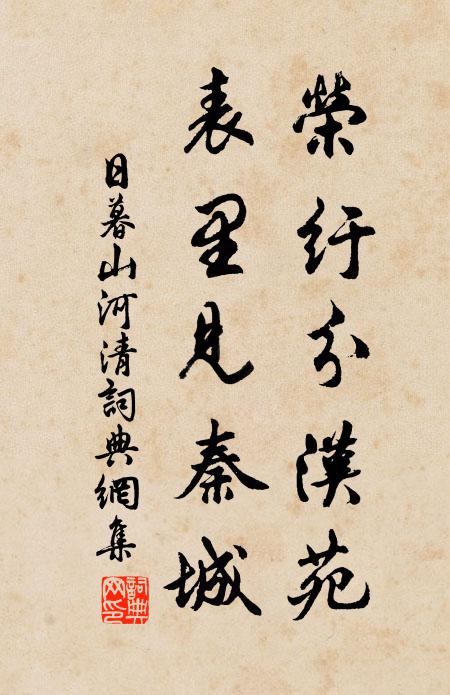 榮紆分漢苑
表里見秦城
日暮山河清詞典網集
詞典
网印